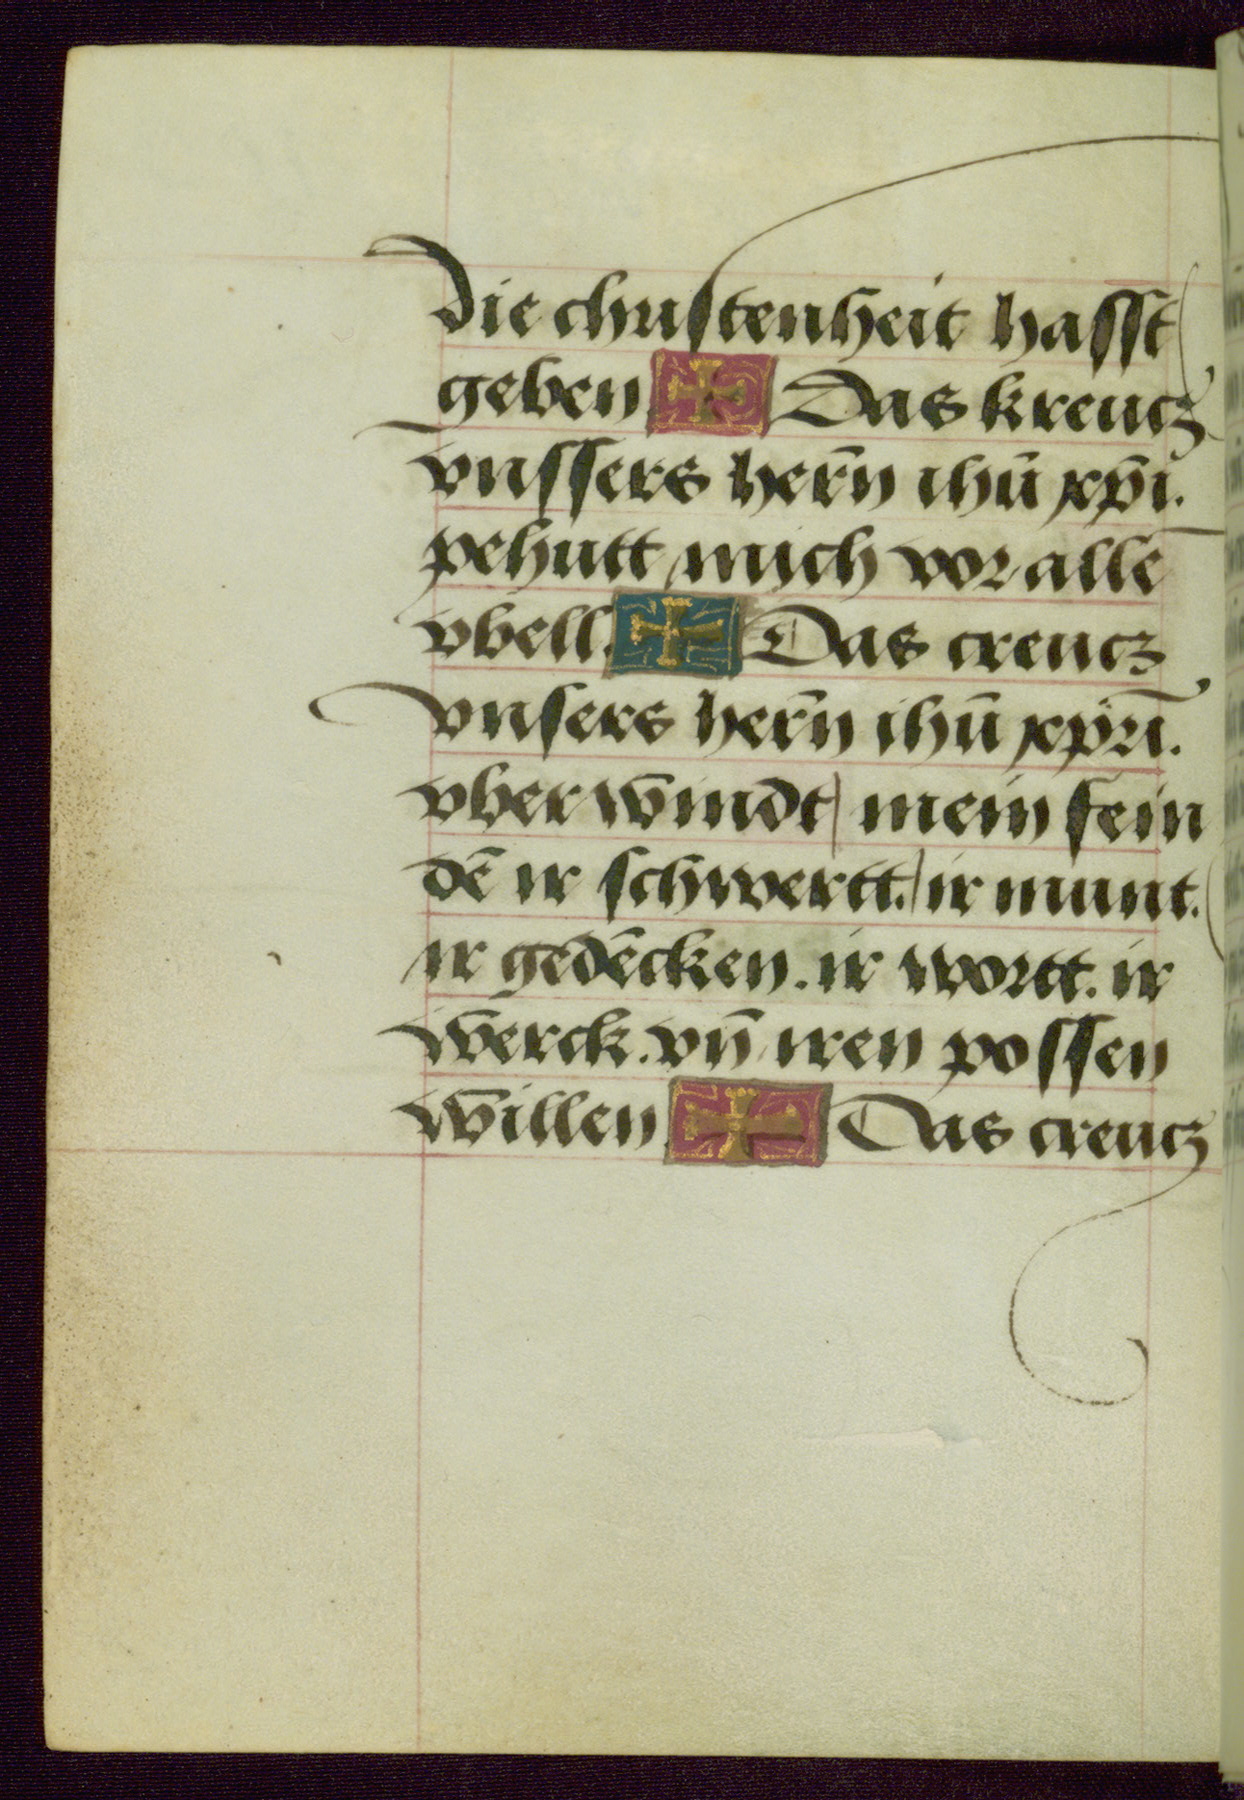 die christenheit hasst
geben ✚ Das kreucz
vnssers her̄n ihū xp̄i.
pehutt mich vor alle
vbell. ✚ Das creucz
vnsers her̄n ihū xp̄ri.
vberwindt mein fein
dē ir schwertt. ir munt.
ir gedēcken. ir wortt. ir
werck. vn̄ iren possen
willen. ✚ Das creucz